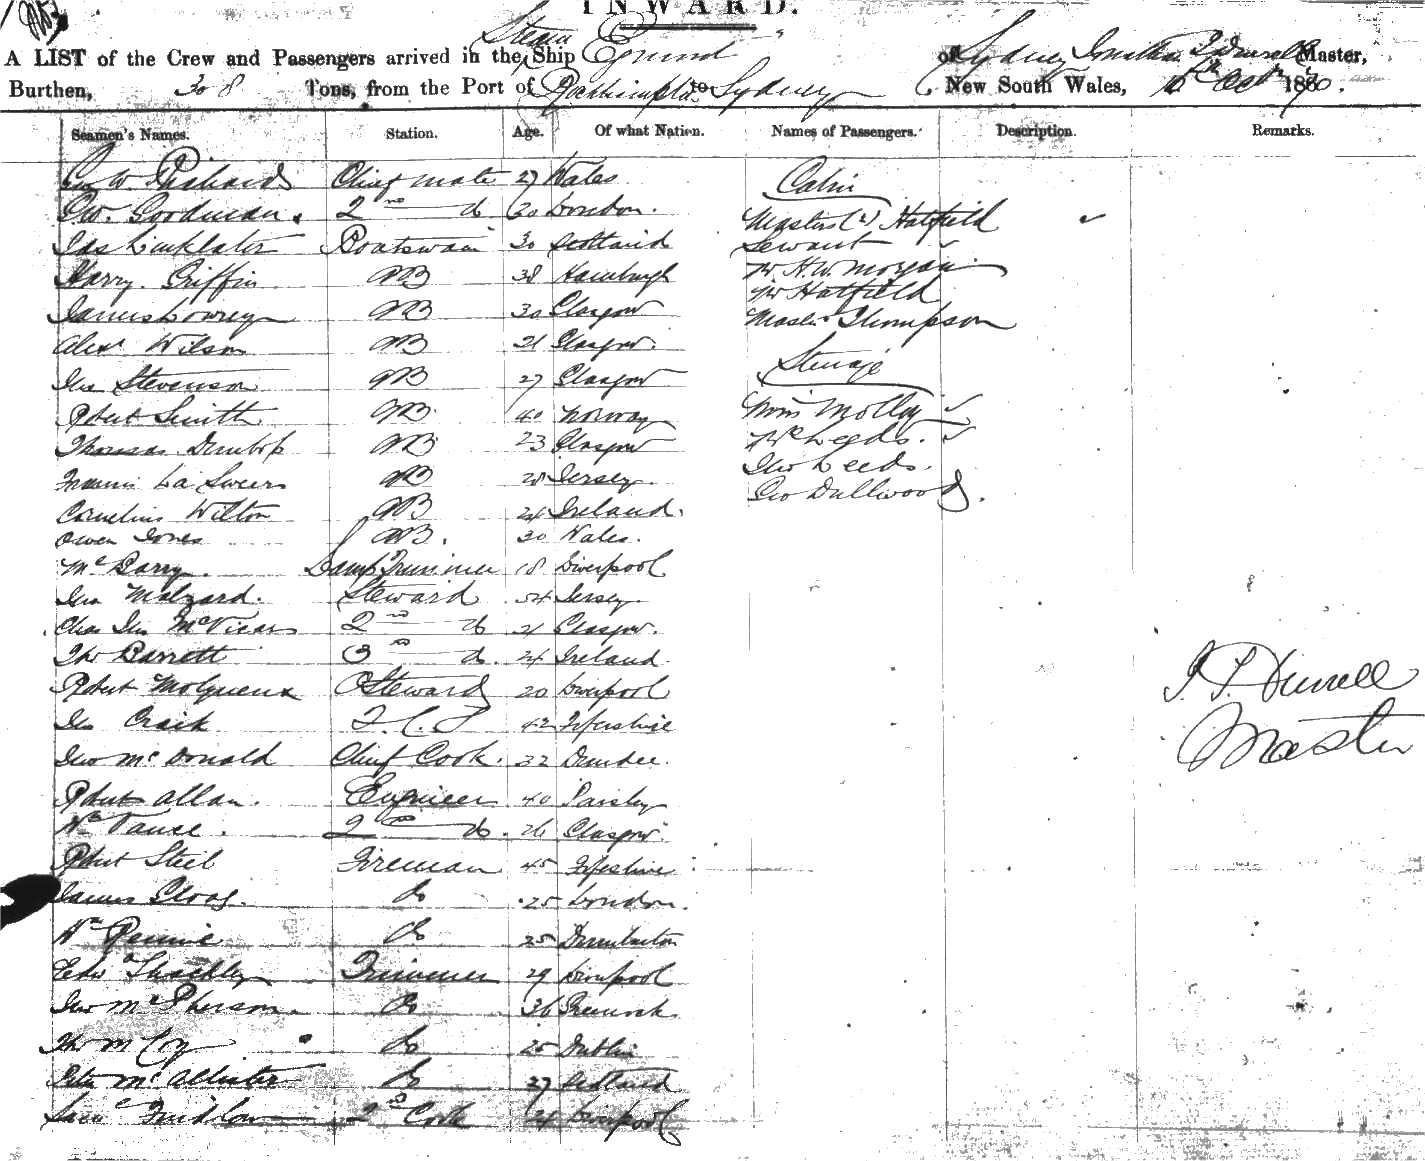 INWARD.
A LIST of the Crew and Passengers arrived in the Steam Ship Egmont of Sydney Jonathan T Durrell Master,
Burthen, 308 Tons, from the Port of Rockhampton to Sydney New South Wales, Oct 1870.
Seamen's Names. Station. Age. Of what Nation. Names of Passengers. Description. Remarks.
Geo W. Richards Chief mate 27 Wales Cabin
Gw. Goodman 2nd do 30 London. Masters (2) Hatfield
Jas Linklater Boatswain 30 Scotland Servant
Harry Griffin AB 38 Hamburgh Mr H.W. Morgan
James Lowrey AB 30 Glasgow Mr Hatfield
Alexr Wilson AB 21 Glasgow. Master Thompson
Jno Stevenson AB 27 Glasgow Steerage
Robert Smith AB 40 Norway Wm Molloy
Thomas Dunlop AB 23 Glasgow Mrs Leeds.
Francis La AB 28 Jersey Jno Leeds.
Cornelius Wilton AB 24 Ireland. Geo Dullwood.
Owen Jones AB. 30 Wales.
Mc Barry. Lamp Trimmer 18 Liverpool
Jno Malzard. Steward 34 Jersey
Chas Jno McVicar 2nd do 21 Glasgow.
Thos Barrett 3rd do. 24 Ireland
Robert Molyneux Steward 20 Liverpool
Jno Craik 42 Fifeshire J T. Durrell
Jno McDonald Chief Cook. 32 Dundee. Master
Robert Allan. Engineer 40 Paisley
Wm Vance. 2nd do. 26 Glasgow
Robert Steil Fireman 45 Fifeshire
James Cloag. do 25 London.
Wm Rennie do 25 Dumbarton
Edwd Thackley Trimmer 29 Liverpool
Jno McPherson. do 36 Greenock
Thos McCoy do 25 Dublin
Peter McAllister do 27 Scotland
2nd Cook 24 Liverpool